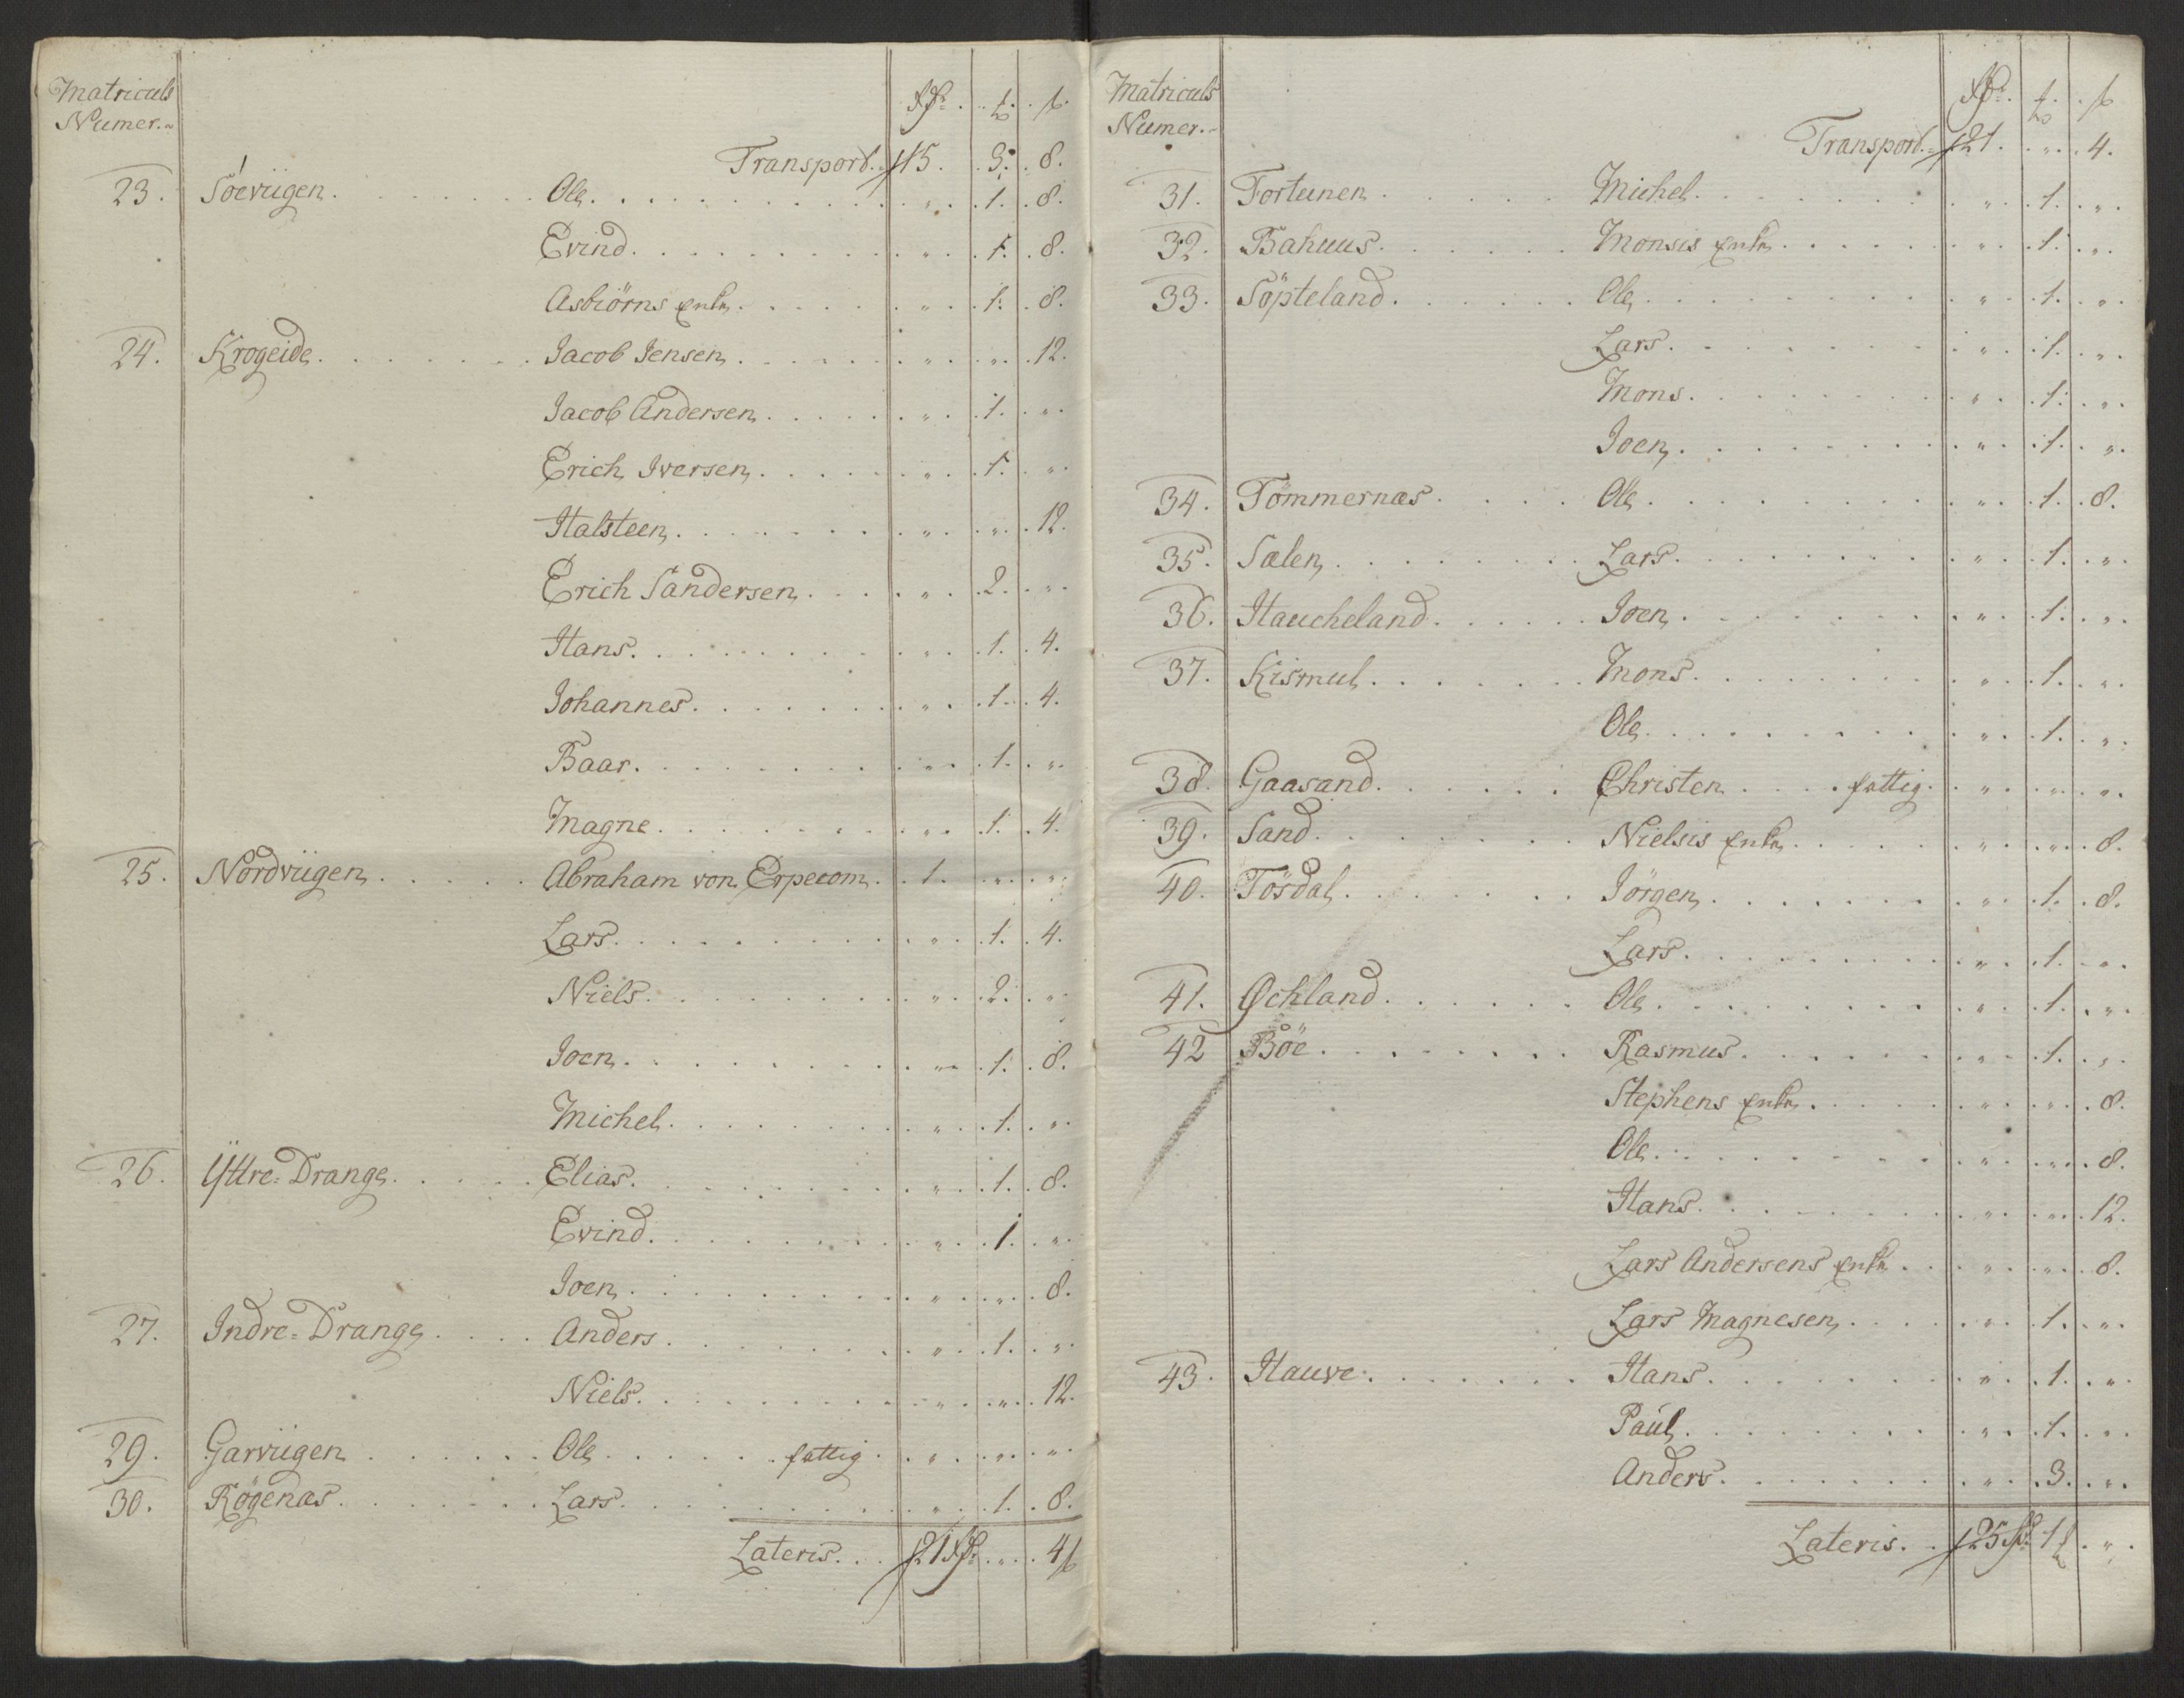 Matriculs
Numer.
Rdr. . t. . ß.
Transport. 15. . 3. . 8.
23. Söeviigen. Ole. " . 1. . 8.
Evind. " . 1. . 8.
Asbiörns Enke. " . 1. . 8.
24. Krogeide. Jacob Jensen. " . " . 12.
Jacob Andersen. " . 1. . "
Erich Iversen. " . 1. . "
Halsteen. " . " . 12.
Erich Sandersen. " . 2. . "
Hans. " . 1. . 4.
Johannes. " . 1. . 4.
Baar. " . 1. . "
Magne. " . 1. . 4.
25. Nordviigen. Abraham von Erpecom. . 1. . " . "
Lars. " . 1. . 4.
Niels. " . 2. . "
Joen. " . 1. . 8.
Michel. " . 1. . "
26. Ÿttre=Drange. Elias. " . 1. . 8.
Evind. " . 1. . "
Joen. " . " . 8.
27. Indre=Drange. Anders. " . 1. . "
Niels. " . " . 12.
29. Garviigen. Ole. fattig. " . " . "
30. Rögenæs. Lars. " . 1. . 8.
Lateris. 21 Rdr. . " . 4 ß
Matriculs
Numer.
Rdr. . t. . ß
Transport. 21. . " . 4.
31. Fortunen. Michel. " . 1. . "
32. Bahuus. Monsis Enke. " . 1. . "
33. Söpteland. Ole. " . 1. . "
Lars. " . 1. . "
Mons. " . 1. . "
Joen. " . 1. . "
34. Tömmernæs. Ole. " . 1. . 8.
35. Sælen. Lars. " . 1. . "
36. Haucheland. Joen. " . 1. . "
37. Kismul. Mons. " . 1. . "
Ole. " . 1. . "
38. Gaasand. Christen. fattig. " . " . "
39. Sand. Nielsis Enke. " . " . 8.
40. Tösdal. Jörgen. " . 1. . 8.
Lars. " . 1. . "
41. Øchland. Ole. " . 1. . "
42 Böe. Rasmus. " . 1. . "
Stephens Enke. " . " . 8.
Ole. " . " . 8.
Hans. " . " . 12.
Lars Andersens Enke. " . " . 8.
Lars Magnesen. " . 1. . "
43. Hauve. Hans. " . 1. . "
Paul. " . 1. . "
Anders. " . 3. . "
Lateris. 25 Rdr. 1 t. . "